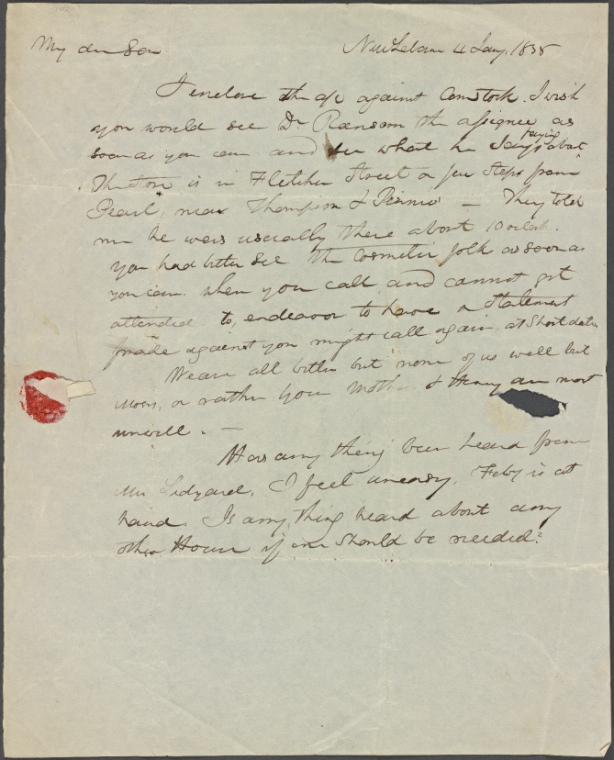 My dear Son New Lebanon 4 Jany. 1838
I enclose the a/c against Comstock. I wish
you would see Dr Ransom the assignee as
soon as you can and see what he says about
paying
The Store is in Fletcher Street a few Steps from
Pearl, near Thompson &
They told
me he was usually there about 10 oclock.
You had better see the Cosmetic folk as soon as
you can. When you call and cannot get
attended to, endeavor to have a Statement
made against you might call again at Short dates
We are all better but none of us well but
or rather your Mother & Mary are most
unwell. —
Has any thing been heard from
Mr Lidyard. I feel uneasy. Feby is at
hand. Is any thing heard about any
other House if one should be needed?